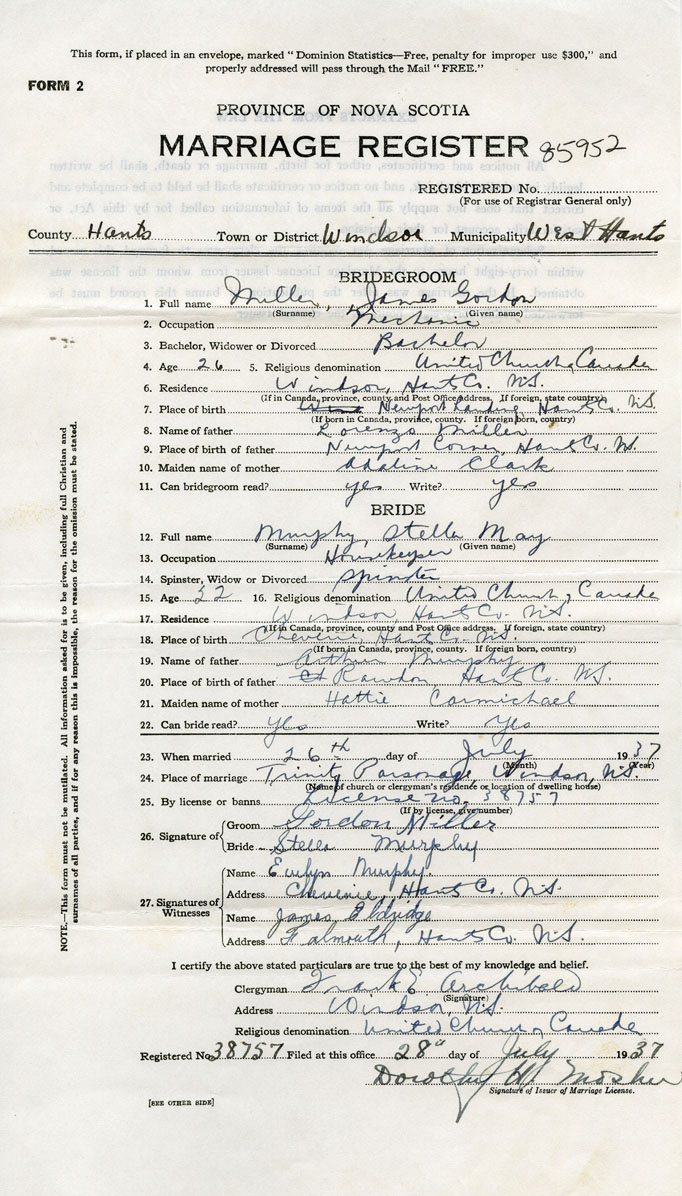 This form, if placed in an envelope, marked "Dominion Statistics—Free, penalty for improper use $300," and
properly addressed will pass through the Mail "FREE."
FORM 2
PROVINCE OF NOVA SCOTIA
MARRIAGE REGISTER 85952
REGISTERED No.
(For use of Registrar General only)
County Hants Town or District Windsor Municipality West Hants
BRIDEGROOM
1. Full name Miller, James Gordon
(Surname) (Given name)
2. Occupation Mechanic
3. Bachelor, Widower or Divorced Bachelor
4. Age 26 5. Religious denomination United Church, Canada
6. Residence Windsor, Hants Co. N.S.
(If in Canada, province, county and Post Office Address. If foreign, state country)
7. Place of birth Newport Landing, Hants Co. N.S.
(If born in Canada, province, county. If foreign born, country)
8. Name of father Lorenzo Miller
9. Place of birth of father Newport Corner, Hants Co. N.S.
10. Maiden name of mother Adaline Clark
11. Can bridegroom read? yes Write? yes
BRIDE
12. Full name Murphy, Stella May
(Surname) (Given name)
13. Occupation Housekeeper
14. Spinster, Widow or Divorced Spinster
15. Age 32 16. Religious denomination United Church, Canada
17. Residence Windsor, Hants Co. N.S.
(If in Canada, province, county and Post Office address. If foreign, state country)
18. Place of birth Cheverie, Hants Co. N.S.
(If born in Canada, province, county. If foreign born, country)
19. Name of father Arthur Murphy
20. Place of birth of father Rawdon, Hants Co. N.S.
21. Maiden name of mother Hattie Carmichael
22. Can bride read? Yes Write? Yes
23. When married 26th day of July 1937
(Month) (Year)
24. Place of marriage Trinity Parsonage, Windsor, N.S.
(Name of church or clergyman's residence or location of dwelling house)
25. By license or banns License no. 38757
(If by license, give number)
26. Signature of
Groom Gordon Miller
Bride Stella Murphy
27. Signatures of Witnesses
Name Evelyn Murphy.
Address Cheverie, Hants Co. N.S.
Name James Eldridge
Address Falmouth, Hants Co. N.S.
I certify the above stated particulars are true to the best of my knowledge and belief.
Clergyman Frank E. Archibald
(Signature)
Address Windsor, N.S.
Religious denomination United Church, Canada
Registered No. 38757 Filed at this office 28th day of July 1937
Dorothy M Mosher
Signature of Issuer of Marriage License.
[SEE OTHER SIDE]
NOTE.—This form must not be mutilated. All information asked for is to be given, including full Christian and
surnames of all parties, and if for any reason this is impossible, the reason for the omission must be stated.